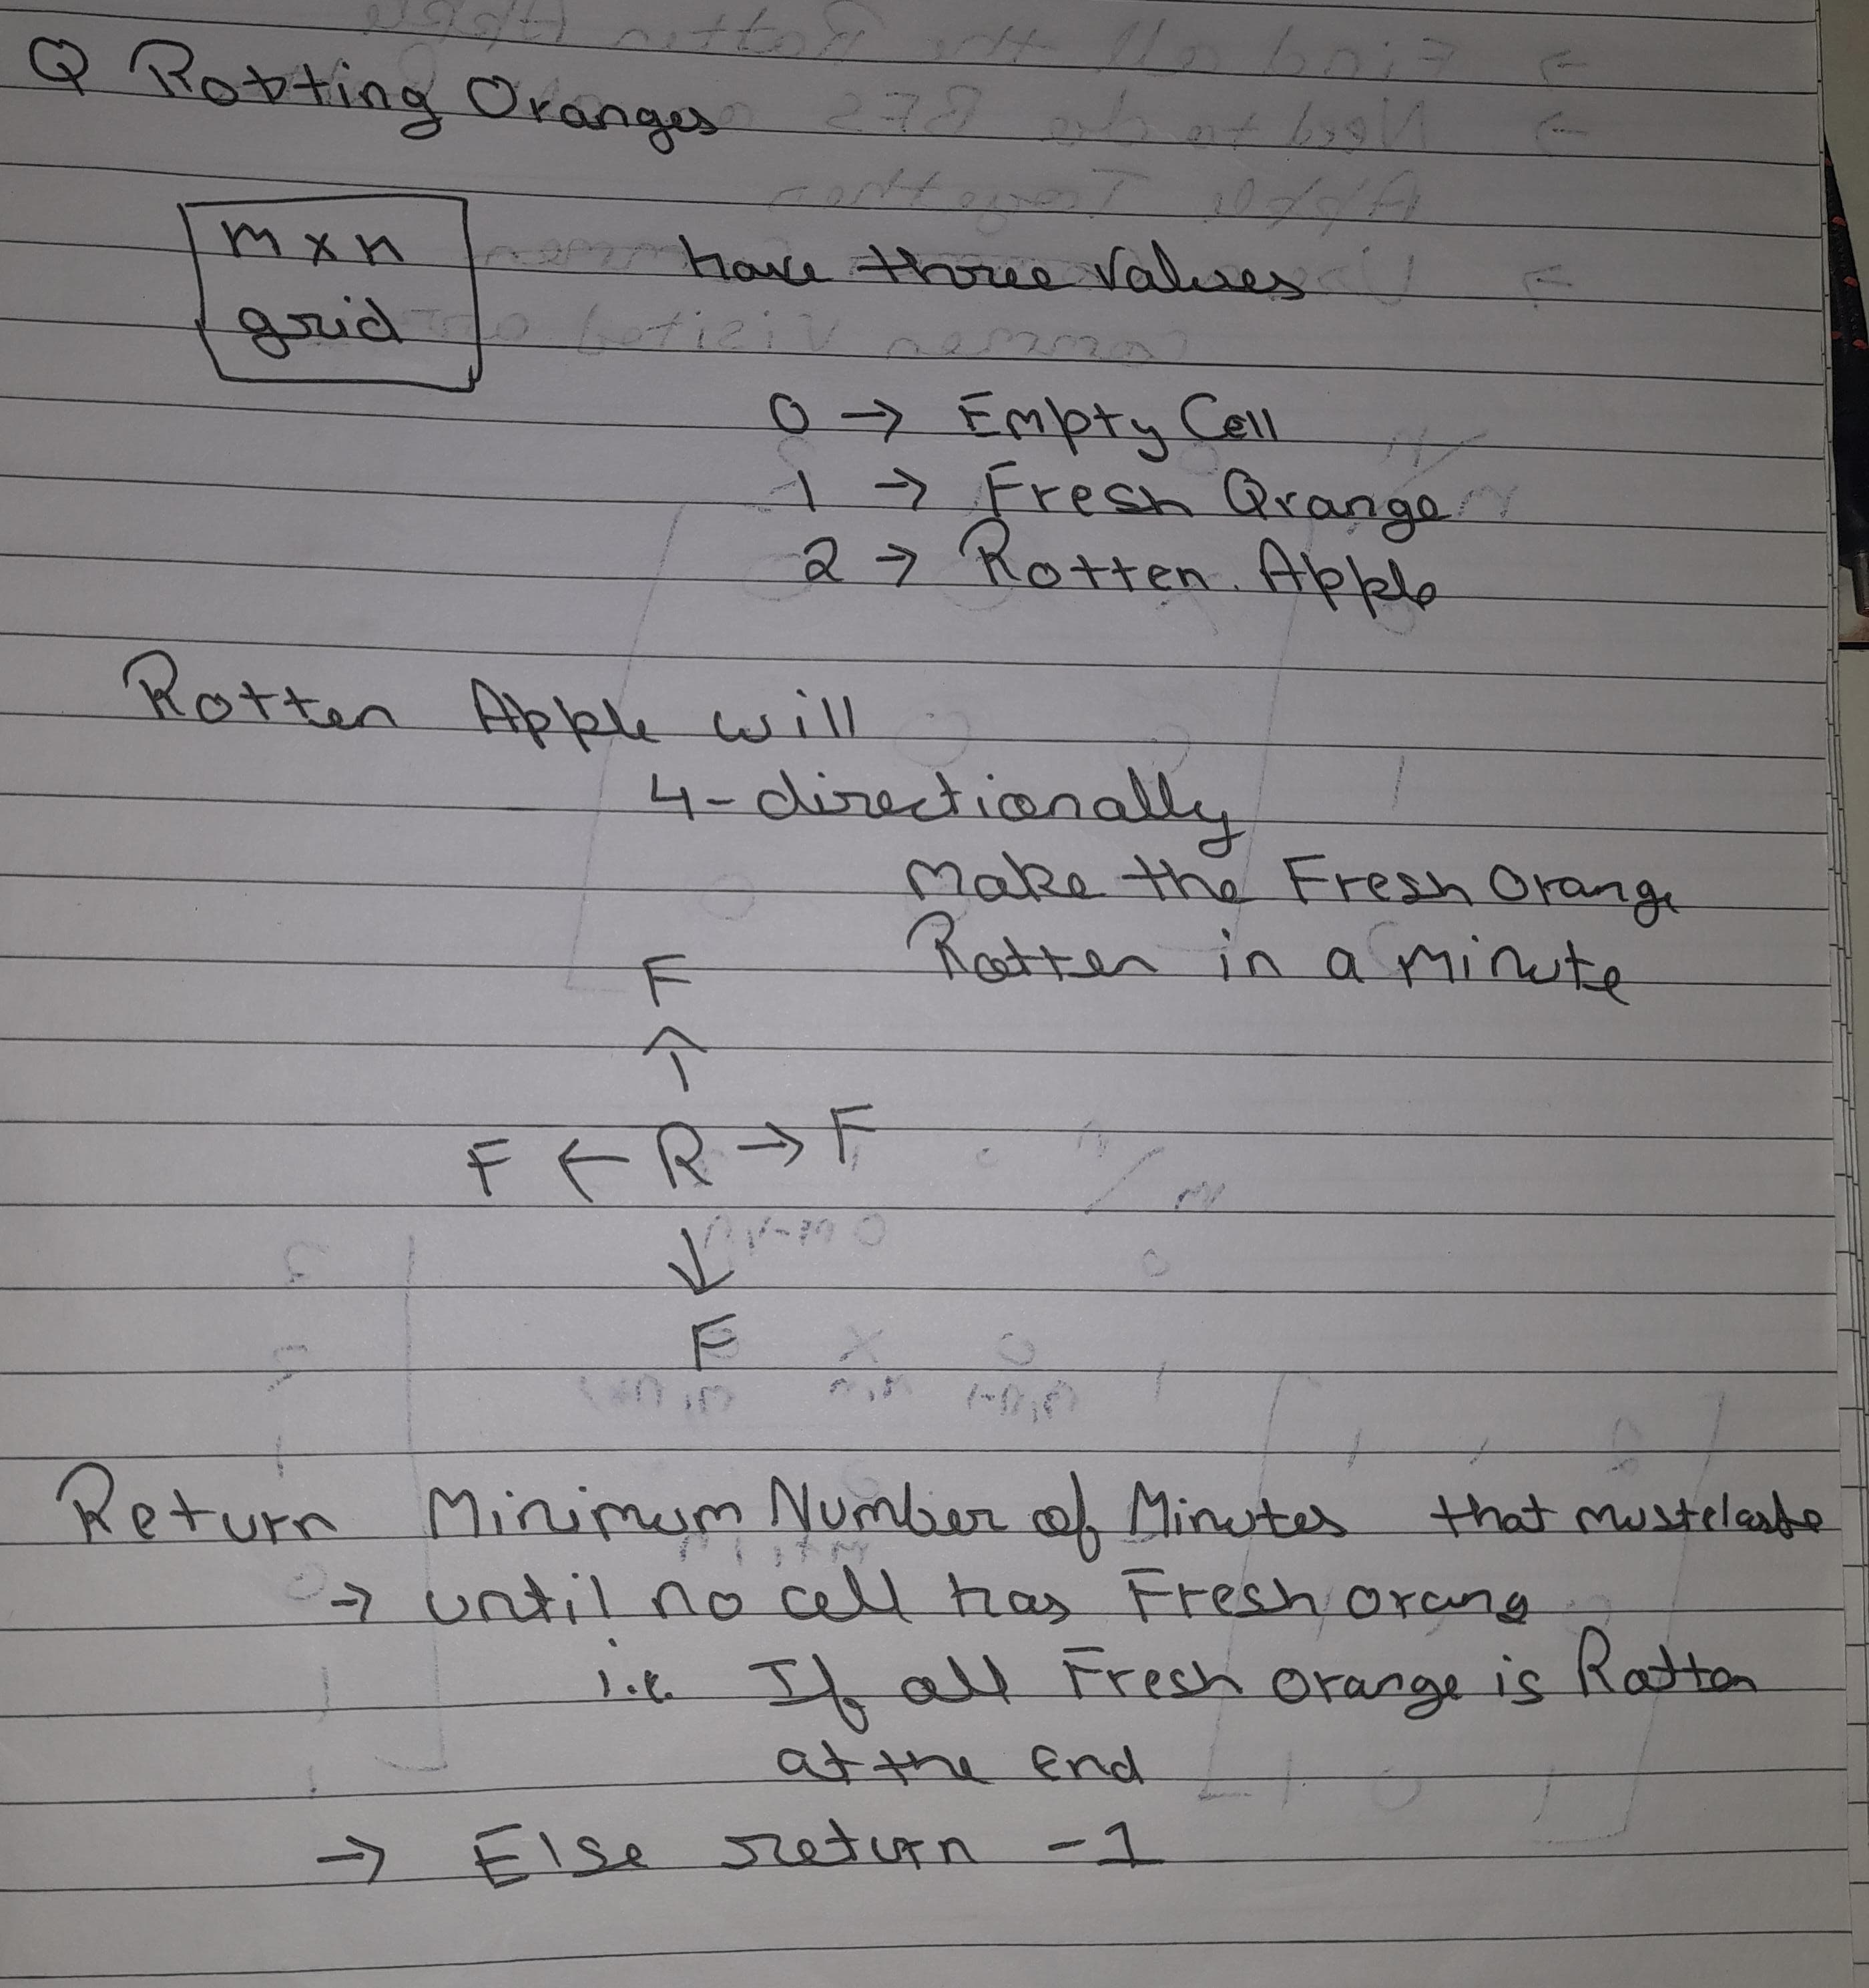 Q Rotting Oranges
m x n
grid
have three values
0 → Empty Cell
1 → Fresh Orange
2 → Rotten Apple
Rotten Apple will
4-directionally
make the Fresh Orange
Rotten in a minute
F
↑
F ← R → F
↓
F
Return Minimum Number of Minutes that must
→ until no cell has Fresh orang
i.e. If all Fresh orange is Rotten
at the end
→ Else return -1